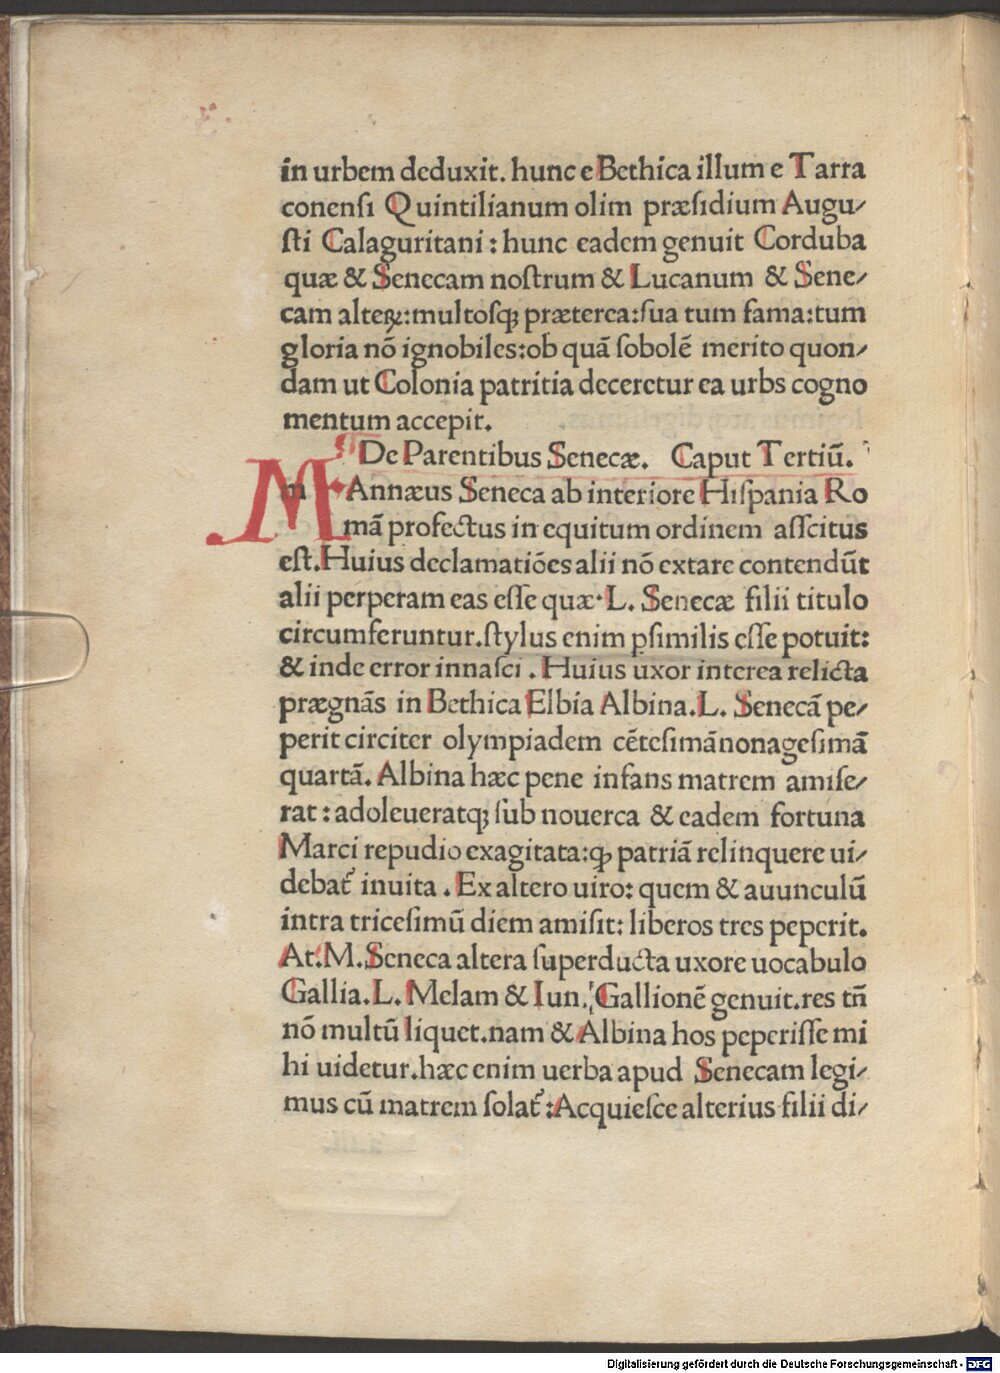 in urbem deduxit. hunc e Bethica illum e Tarra
conensi Quintilianum olim præsidium Augu⸗
sti Calaguritani : hunc eadem genuit Corduba
quæ & Senecam nostrum & Lucanum & Sene⸗
cam alteꝝ: multosqꝫ præterea: sua tum fama: tum
gloria nō ignobiles: ob quā sobolē merito quon⸗
dam ut Colonia patritia deceretur ea urbs cogno
mentum accepit.
De Parentibus Senecæ. Caput Tertiū.
M Annæus Seneca ab interiore Hispania Ro
mā profectus in equitum ordinem asscitus
est. Huius declamatiōes alii nō extare contendūt
alii perperam eas esse quæ · L. Senecæ filii titulo
circumferuntur. stylus enim ꝑsimilis esse potuit:
& inde error innasci . Huius uxor interea relicta
prægnās in Bethica Elbia Albina. L. Senecā pe⸗
perit circiter olympiadem cētesimānonagesimā
quartā. Albina hæc pene infans matrem amise⸗
rat : adoleueratqꝫ sub nouerca & eadem fortuna
Marci repudio exagitata: ꝙ patriā relinquere ui⸗
debat᷑ inuita . Ex altero uiro: quem & auunculū
intra tricesimū diem amisit: liberos tres peperit.
At. M. Seneca altera superducta uxore uocabulo
Gallia. L. Melam & Iun. Gallionē genuit. res tn̄
nō multū liquet. nam & Albina hos peperisse mi
hi uidetur. hæc enim uerba apud Senecam legi⸗
mus cū matrem solat᷑ : Acquiesce alterius filii di⸗
Digitalisierung gefördert durch die Deutsche Forschungsgemeinschaft - DFG